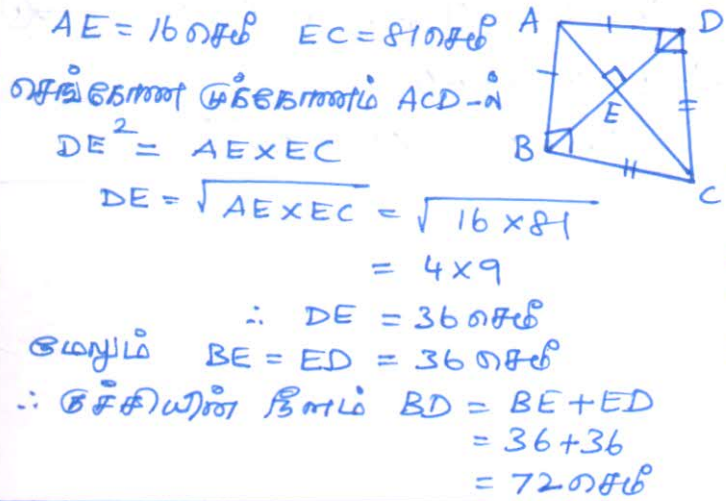 AE = 16 செமீ EC = 81 செமீ
செங்கோண முக்கோணம் ACD-ல்
DE² = AE × EC
DE = √AE × EC = √16 × 81
= 4 × 9
∴ DE = 36 செமீ
மேலும் BE = ED = 36 செமீ
∴ குச்சியின் நீளம் BD = BE + ED
= 36 + 36
= 72 செமீ
A
D
E
B
C